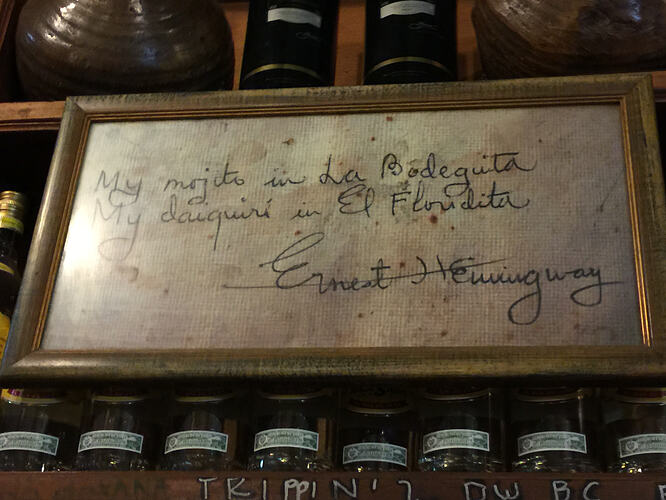 My mojito in La Bodeguita
My daiquirí in El Floridita
Ernest Hemingway
TRIPPIN'